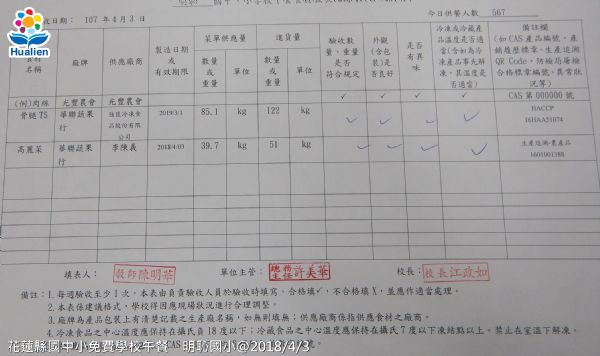 Hualien
收日期： 107 年 4 月 3 日
今日供餐人數： 567
名稱
廠牌
供應廠商
製造日期
或
有效期限
菜單供應量
進貨量
數量
或
重量
單位
數量
或
重量
單位
驗收數
量、重量
是否
符合規定
外觀
(含包
裝)是
否良好
是否
有異
味
冷凍或冷藏產
品溫度是否適
當(含如為冷
凍產品事先解
凍，其溫度是
否適當)
備註欄
(如 CAS 產品編號、產
銷履歷標章、生產追溯
QR Code、防檢局屠檢
合格標章編號、異常狀
況等)
(例)肉絲 光豐農會 光豐農會 ✓ ✓ ✓ ✓ CAS 第 000000 號
骨腿T5 華聯蔬果行 強匠冷凍食品股份有限公司 2019/3/1 85.1 kg 122 kg ✓ ✓ ✓ ✓ HACCP 16HAA51074
高麗菜 華聯蔬果行 李陳義 2018/4/03 39.7 kg 51 kg ✓ ✓ ✓ ✓ 生產追溯-農產品 1601901388
填表人： 教師陳明華 單位主管： 總務主任許美華 校長： 校長江政如
備註：1.每週驗收至少 1 次，本表由負責驗收人員於驗收時填寫，合格填✓，不合格填 X，並應作適當處理。
2.本表係建議格式，學校得因應現場狀況進行合理調整。
3.廠牌為產品包裝上有清楚記載之生產廠名稱，如無則填無；供應廠商係指供應食材之廠商。
4.冷凍食品之中心溫度應保持在攝氏負 18 度以下；冷藏食品之中心溫度應保持在攝氏 7 度以下凍結點以上。禁止在室溫下解凍。
花蓮縣國中小免費學校午餐 明恥國小@2018/4/3